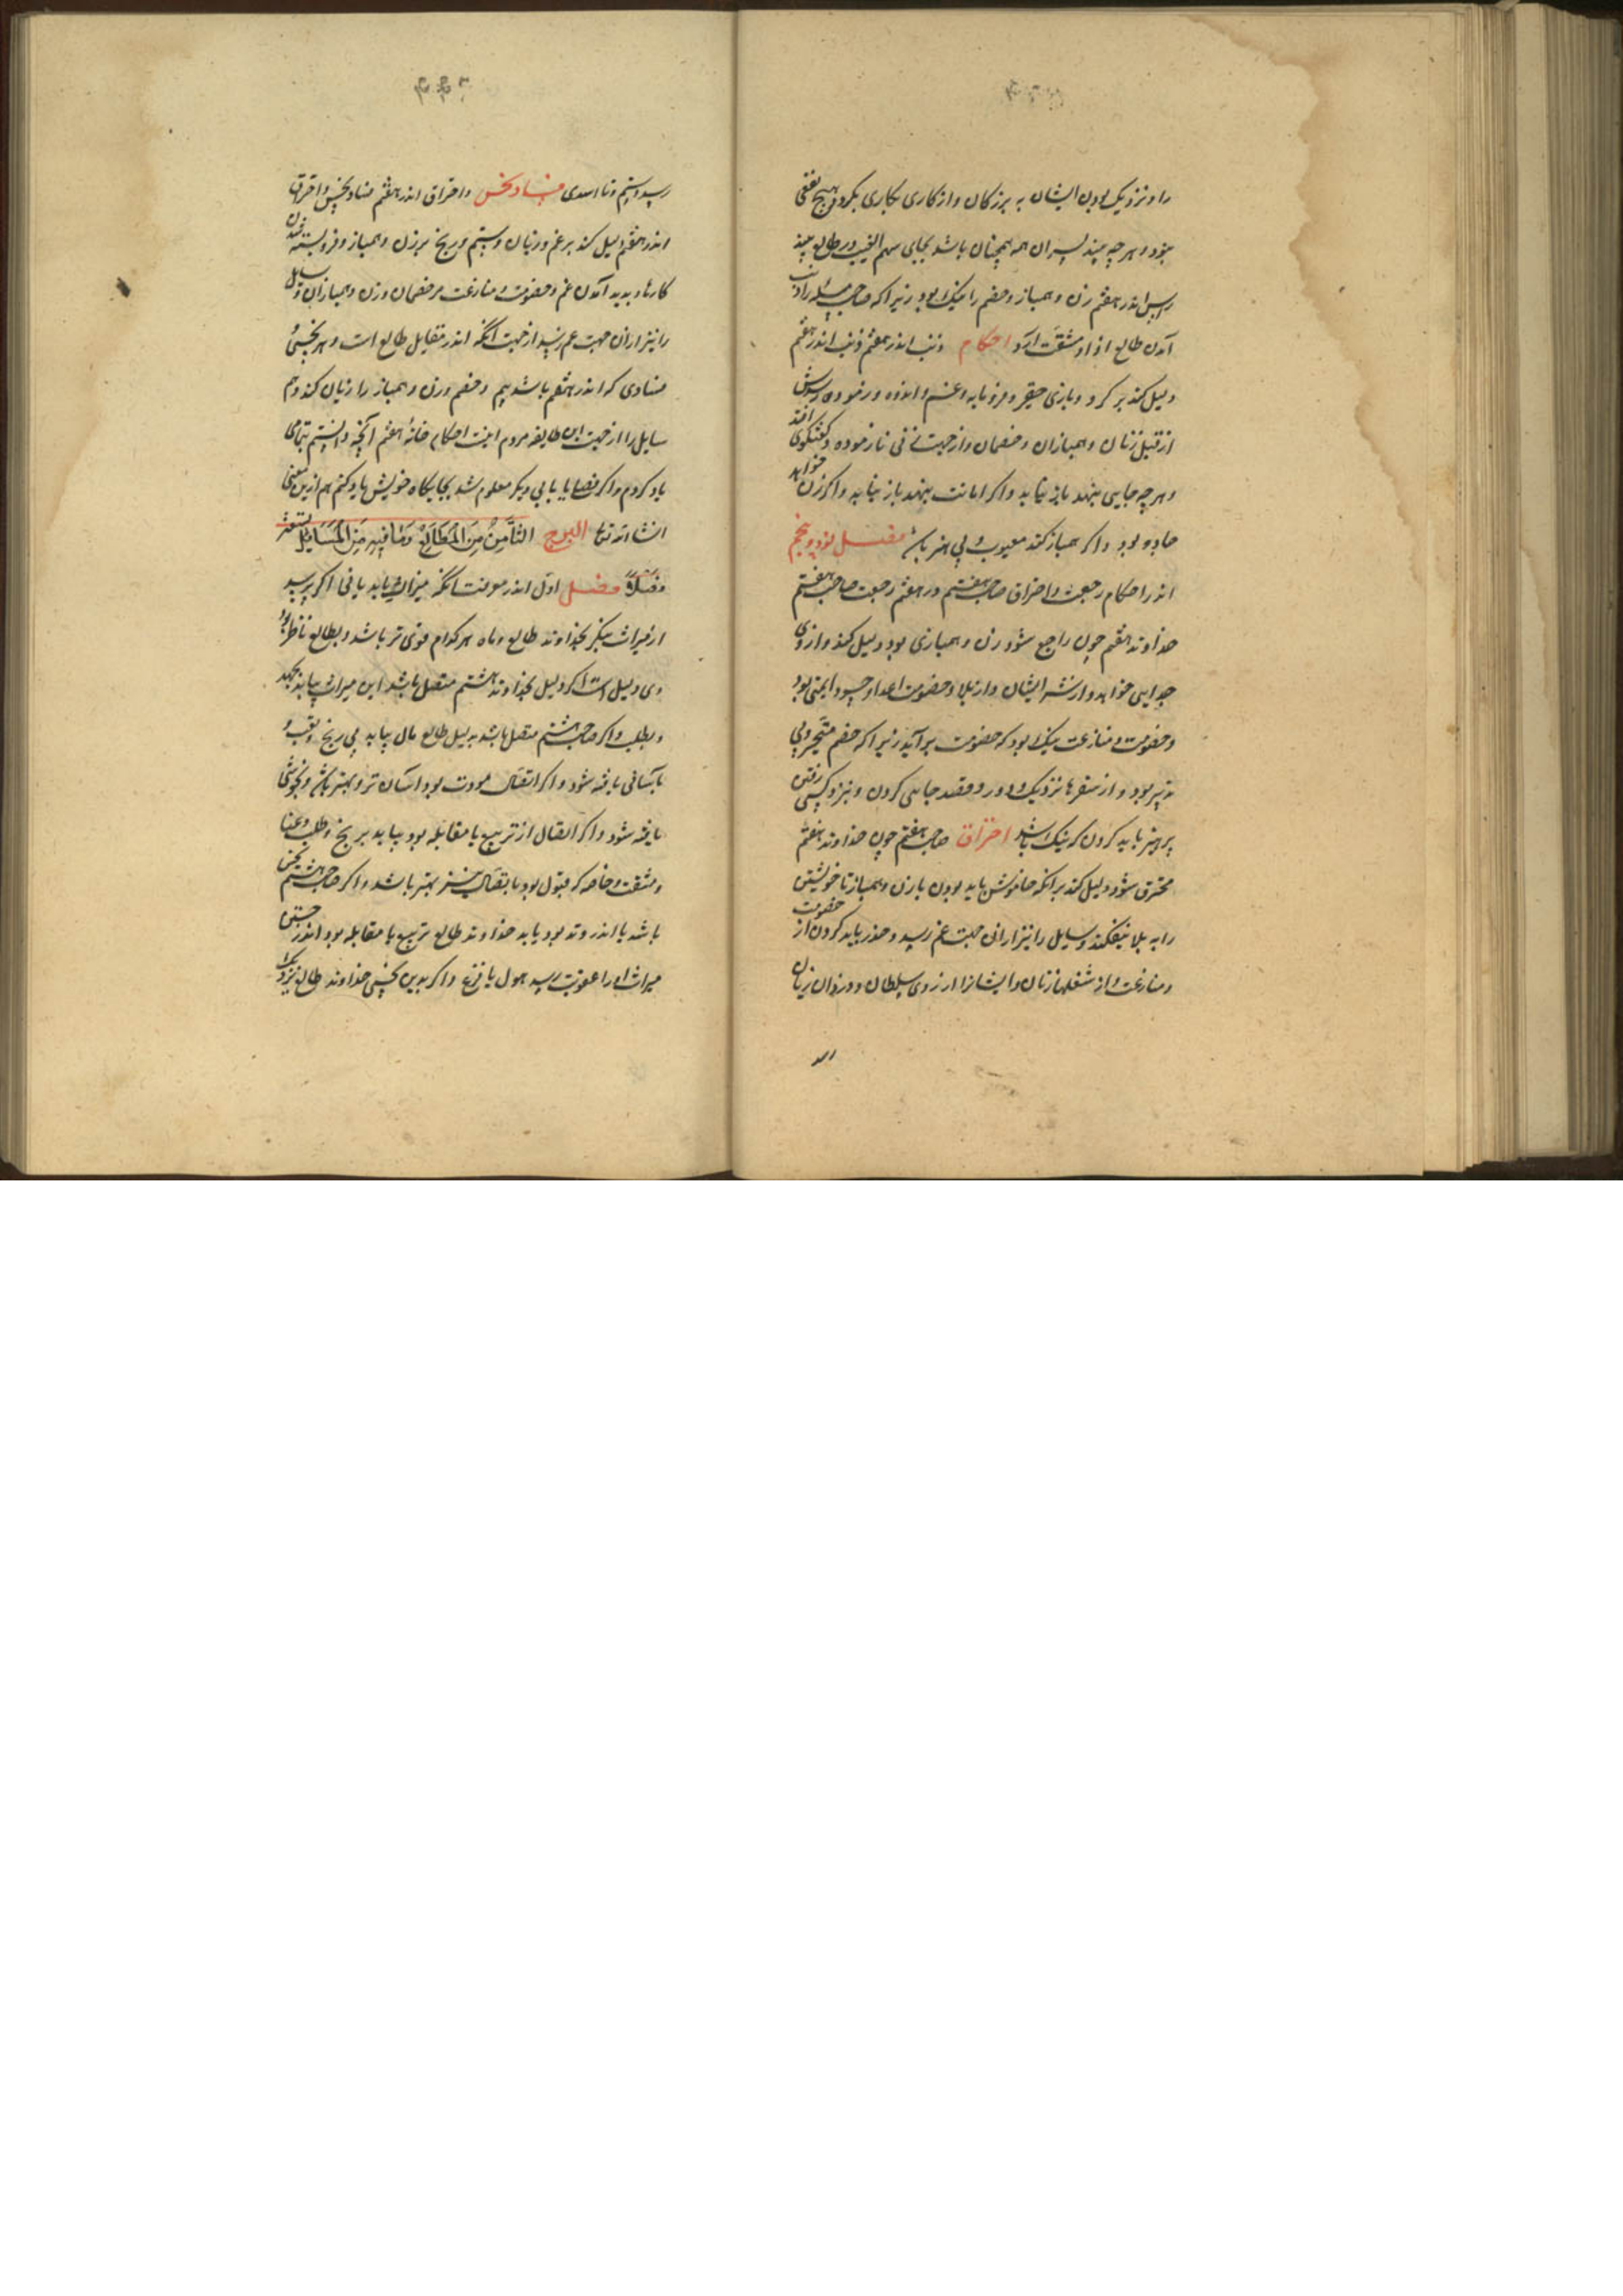 را و نزدیک بودن ایشان به بزرگان و از کاری بکاری بگردد و هیچ نفعی
بنود و هرچه بیند پسران همه همچنان باشد بجای سهم الغیب در طالع بیند
راس اندر هفتم زن و همباز و خصم را نیک بود زیرا که صاحب مسئله را ذنب
آمدن طالع اذا و مشقت آرد احکام ذنب اندر هفتم ذنب اندر هفتم
دلیل کند بر کرد و بازی حقیر و فرومایه و غم و اندوه و رنمودن
از قبل زنان و همبازان و خصمان و از جهت زنی نازموده و گفتگوی افتد
و هرچه جایی بنهد باز نیابد و اگر امانت بنهد باز نیابد و اگر زن خواهد
جادو بود و اگر همباز کند معیوب و بی هنر باشد فصل نود و پنجم
اندر احکام رجعت و احراق صاحب هفتم در هفتم رجعت صاحب هفتم
خداوند هفتم چون راجع شود زن و همبازی بود دلیل کند و از وی
جدایی خواهد و از نشر ایشان و از بلا و خصومت اعدا و حسود ایمنی بود
و خصومت و منازعت نیک بود که خصومت برآید زیرا که خصم متحیر و بی
تدبیر بود و از سفرها نزدیک و دور و قصد جایی کردن و بنزد کسی رفتن
پرهیز باید کردن که نیک باشد احتراق صاحب هفتم چون خداوند هفتم
محترق شود دلیل کند برانکه خاموش باید بودن با زن و همباز تا خویشتن
را به بلا نیفکند و سایل را نیز ازانی جهت غم رسد و حذر باید کردن از خصومت
و منازعت و از شغلها زنان و ایشانرا از روی سلطان و دزدان زیان
رسد
رسد و ستم و ناا‌سدی فساد نحس و احراق اندر هفتم فساد نحس و احراق
اندر هفتم دلیل کند بر غم و زیان و ستم و رنج بر زن و همباز و فروبسته شدن
کارها و پدید آمدن غم و خصومت و منازعت مر خصمان و زن و همبازان و سایل
را نیز ازان جهت غم رسد از جهت آنکه اندر مقابل طالع است و هر نحسی و
فسادی که اندر هفتم باشد بیم و خصم و زن و همباز را زیان کند و هم
سایل را از جهت این طایفه مردم اینت احکام خانه هفتم آنچه دانستم بتمامی
یاد کردم و اگر قضایا بابی دیگر معلوم شد بجایگاه خویش یاد کنم هم ازین معنی
انشاء الله تعا البرج الثَّامِنُ مِنَ الْمَطَالِعُ وَمَا فِيهِ مِنَ الْمَسَايِلُ تسعة عشر
فصلاً فصل اول اندر معرفت آنکه میراث یابد یا نی اگر پرسد
از میراث بنگر بخداوند طالع و ماه هر کدام قوی تر باشد و بطالع ناظر بود
وی دلیل است اگر دلیل بخداوند هشتم متصل باشد این میراث بیابد بجهد
و بطلب و اگر صاحب هشتم متصل باشد بدلیل طالع مال بیابد بی رنج و تعب و
بآسانی یافته شود و اگر اتصال مودت بود آسان تر و بهتر باشد و بخوشی
یافته شود و اگر اتصال از تربیع یا مقابله بود بیابد برنج و طلب و عنا
و مشقت و خاصه که قبول بود با اتصال نیز بهتر باشد و اگر صاحب هشتم نحس
باشد یا اندر وتد بود یا به خداوند طالع تربیع یا مقابله بود اندر جستن
میراث او را عقوبت رسد هول یا فزع و اگر بدین نحسی خداوند طالع نزدیک